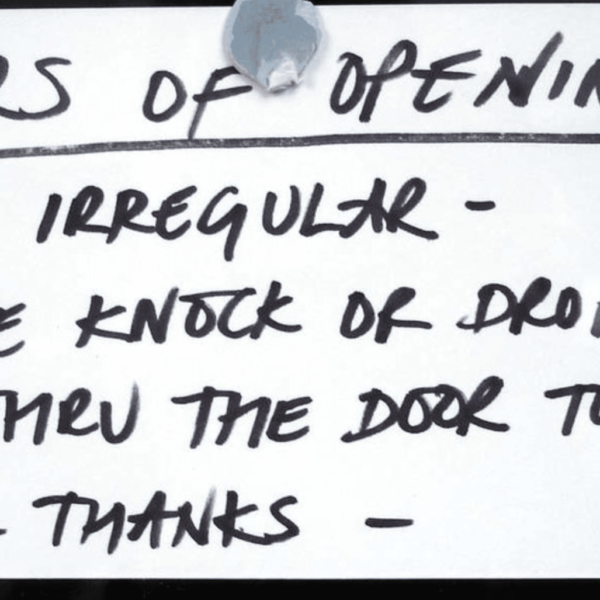 RS OF OPENIN
IRREGULAR -
E KNOCK OR DROP
THRU THE DOOR TO
THANKS -